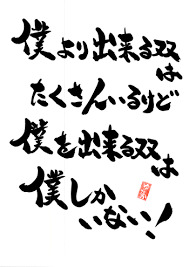 僕より出来る奴は
たくさんいるけど
僕を出来る奴は
僕しか
いない!